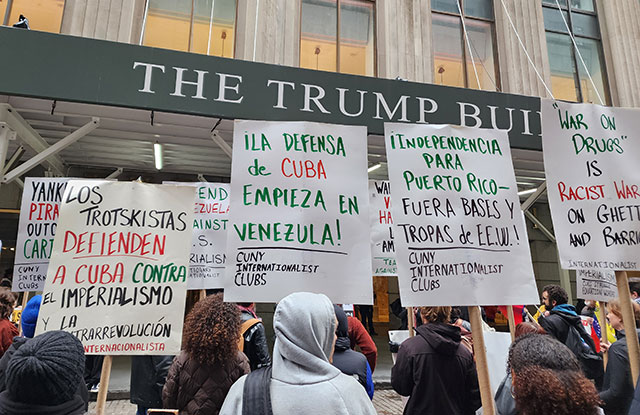 THE TRUMP BUI
YANK
PIRA
OUT O
CARI
CUNY
INTERNATIONALIST
CLUBS
LOS
TROTSKISTAS
DEFIENDEN
A CUBA CONTRA
EL IMPERIALISMO
Y LA
TRARREVOLUCIÓN
INTERNACIONALISTA
END
EZUELA
AINST
.S.
¡LA DEFENSA
de CUBA
EMPIEZA EN
VENEZUELA!
CUNY
INTERNATIONALIST
CLUBS
WAR
¡INDEPENDENCIA
PARA
PUERTO RICO—
FUERA BASES Y
TROPAS de EE.UU.!
CUNY
INTERNATIONALIST
CLUBS
"WAR ON
DRUGS"
IS
RACIST WAR
ON GHETT
AND BARRI
INTERNATIONALIST